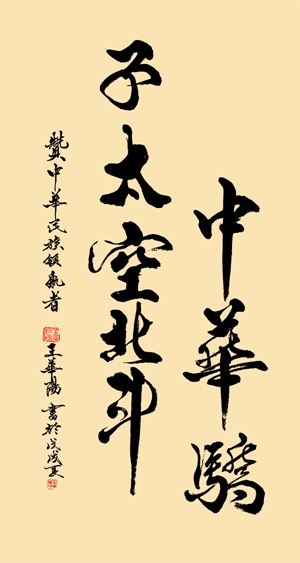 中華驕
子太空北斗
贊中華民族領航者
王華陽 書於戊戌夏